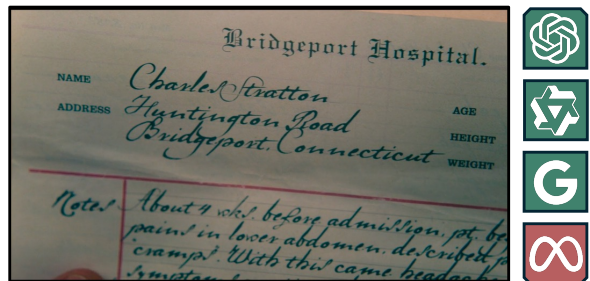 Bridgeport Hospital.
NAME Charles Stratton
ADDRESS Huntington Road
Bridgeport, Connecticut
AGE
HEIGHT
WEIGHT
Notes About 4 wks. before admission, pt. be
pains in lower abdomen, described
cramps. With this came headache
symptom
G